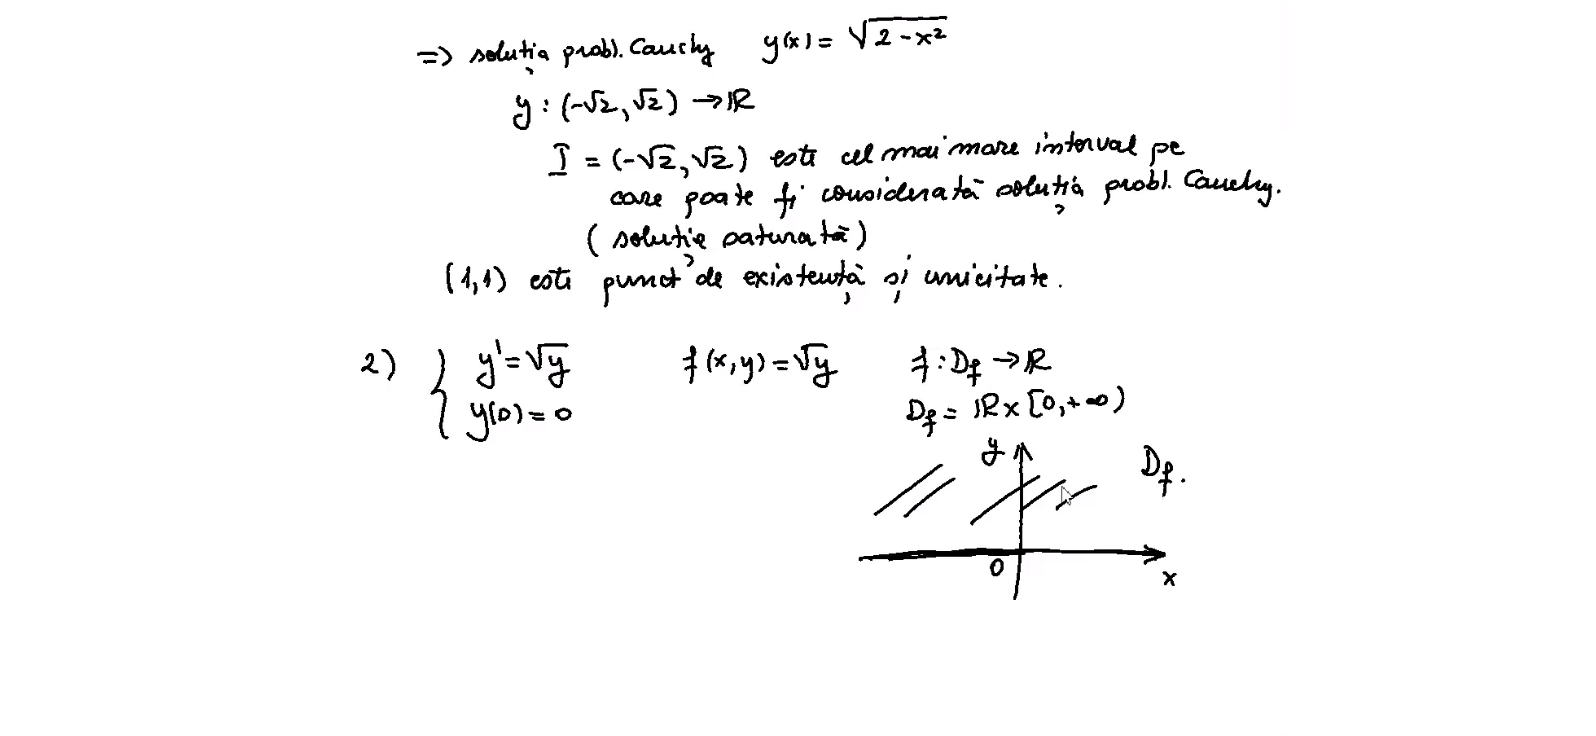 => soluția probl. Cauchy y(x) = √(2-x²)
y : (-√2, √2) → ℝ
I = (-√2, √2) este cel mai mare interval pe
care poate fi considerată soluția probl. Cauchy.
( soluție saturată )
(1,1) este punct de existență și unicitate.
2) { y' = √y f(x,y) = √y f : D_f → ℝ
y(0) = 0 D_f = ℝ × [0, +∞)
y D_f.
0 x